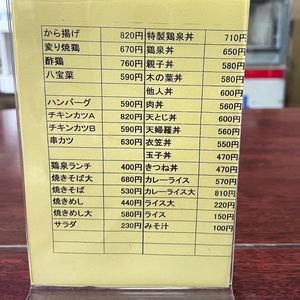 から揚げ 820円 特製鶏泉丼 710円
変り焼鶏 670円 鶏泉丼 650円
酢鶏 760円 親子丼 580円
八宝菜 590円 木の葉丼 580円
他人丼 600円
ハンバーグ 590円 肉丼 560円
チキンカツA 820円 天とじ丼 600円
チキンカツB 590円 天婦羅丼 600円
串カツ 630円 衣笠丼 550円
玉子丼 470円
鶏泉ランチ 400円 きつね丼 470円
焼きそば大 680円 カレーライス 570円
焼きそば 530円 カレーライス大 810円
焼きめし 440円 ライス大 220円
焼きめし大 580円 ライス 150円
サラダ 230円 みそ汁 100円